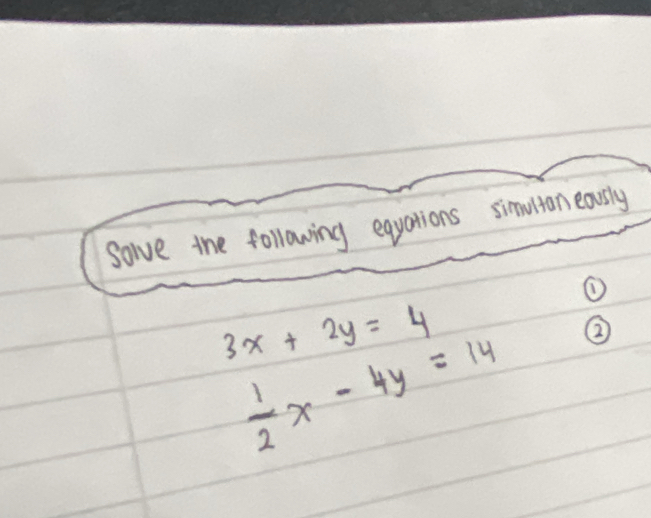 Solve the following equations simultaneously
3x + 2y = 4 ①
1/2 x - 4y = 14 ②